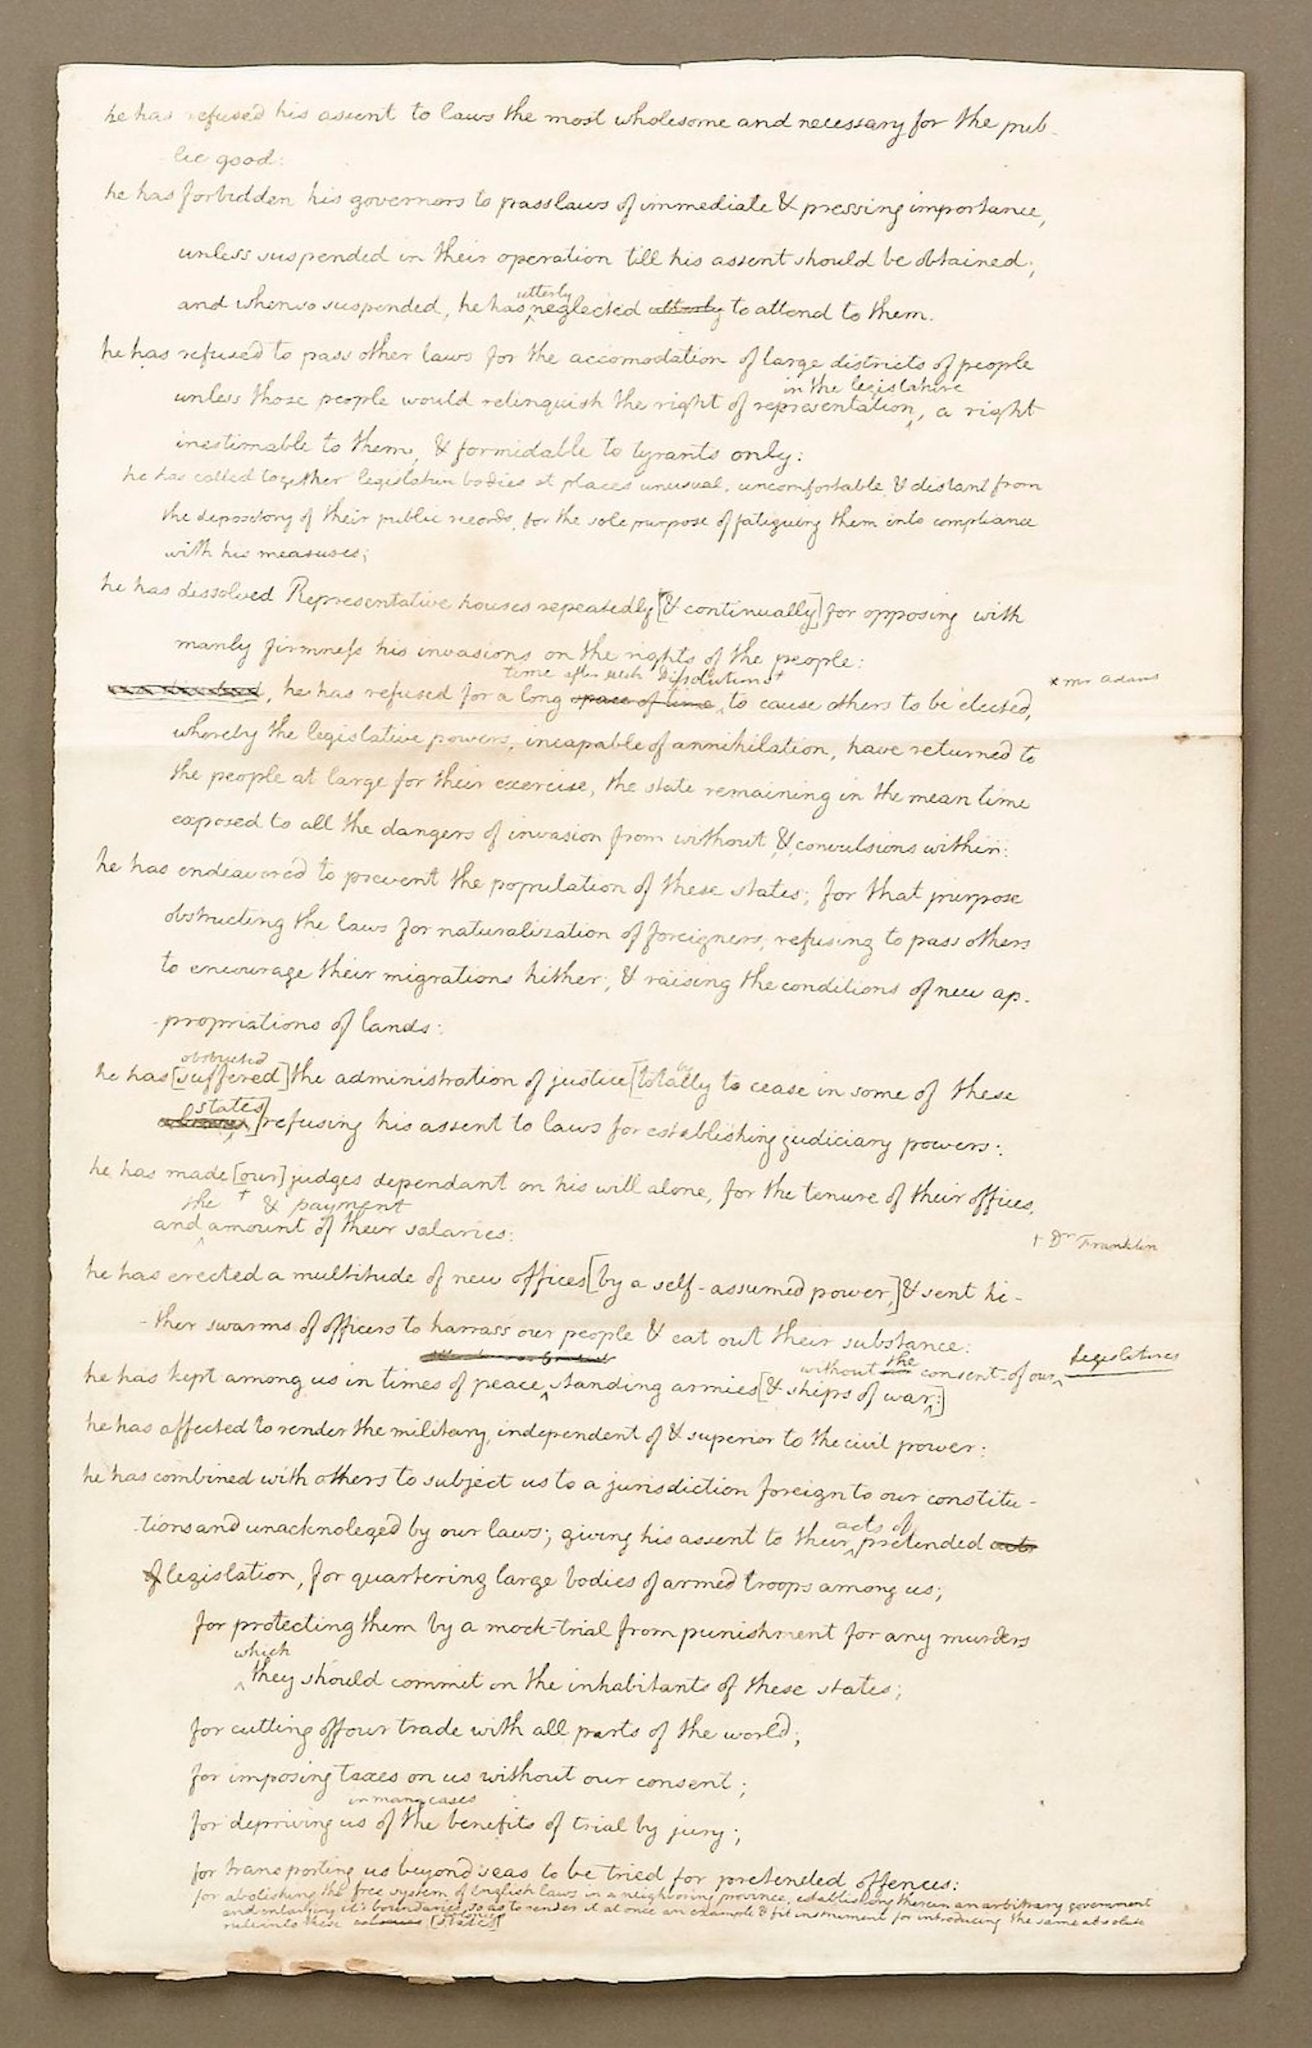 he has refused his assent to laws the most wholesome and necessary for the pub-
lic good:
he has forbidden his governors to pass laws of immediate & pressing importance,
unless suspended in their operation till his assent should be obtained;
utterly
and when so suspended, he has ‸ neglected utterly to attend to them.
he has refused to pass other laws for the accomodation of large districts of people
in the legislature
unless those people would relinquish the right of representation ‸, a right
inestimable to them, & formidable to tyrants only:
he has called together legislative bodies at places unusual, uncomfortable, & distant from
the depository of their public records, for the sole purpose of fatiguing them into compliance
with his measures;
he has dissolved Representative houses repeatedly [& continually] for opposing with
manly firmness his invasions on the rights of the people:
time after such Dissolutions * * mr Adams
, he has refused for a long space of time ‸ to cause others to be elected,
whereby the legislative powers, incapable of annihilation, have returned to
the people at large for their exercise, the state remaining in the mean time
exposed to all the dangers of invasion from without, & convulsions within:
he has endeavored to prevent the population of these states; for that purpose
obstructing the laws for naturalization of foreigners, refusing to pass others
to encourage their migrations hither; & raising the conditions of new ap-
-propriations of lands:
obstructed by
he has [suffered] the administration of justice [totally to cease in some of these
states
‸] refusing his assent to laws for establishing judiciary powers:
he has made [our] judges dependant on his will alone, for the tenure of their offices,
the † & payment
and ‸ amount of their salaries: † Dr Franklin
he has erected a multitude of new offices [by a self-assumed power,] & sent hi-
-ther swarms of officers to harrass our people & eat out their substance:
without the consent of our ‸ legislatures
he has kept among us in times of peace ‸ standing armies [& ships of war ‸:]
he has affected to render the military, independent of & superior to the civil power:
he has combined with others to subject us to a jurisdiction foreign to our constitu-
acts of
-tions and unacknoleged by our laws; giving his assent to their ‸ pretended acts
of legislation, for quartering large bodies of armed troops among us;
for protecting them by a mock-trial from punishment for any murders
which
‸ they should commit on the inhabitants of these states;
for cutting off our trade with all parts of the world;
for imposing taxes on us without our consent;
in many cases
for depriving us of the benefits of trial by jury;
for transporting us beyond seas to be tried for pretended offences:
for abolishing the free system of English laws in a neighboring province, establishing therein an arbitrary government
and enlarging it's boundaries so as to render it at once an example & fit instrument for introducing the same absolute
colonies
rule into these colonies [states]